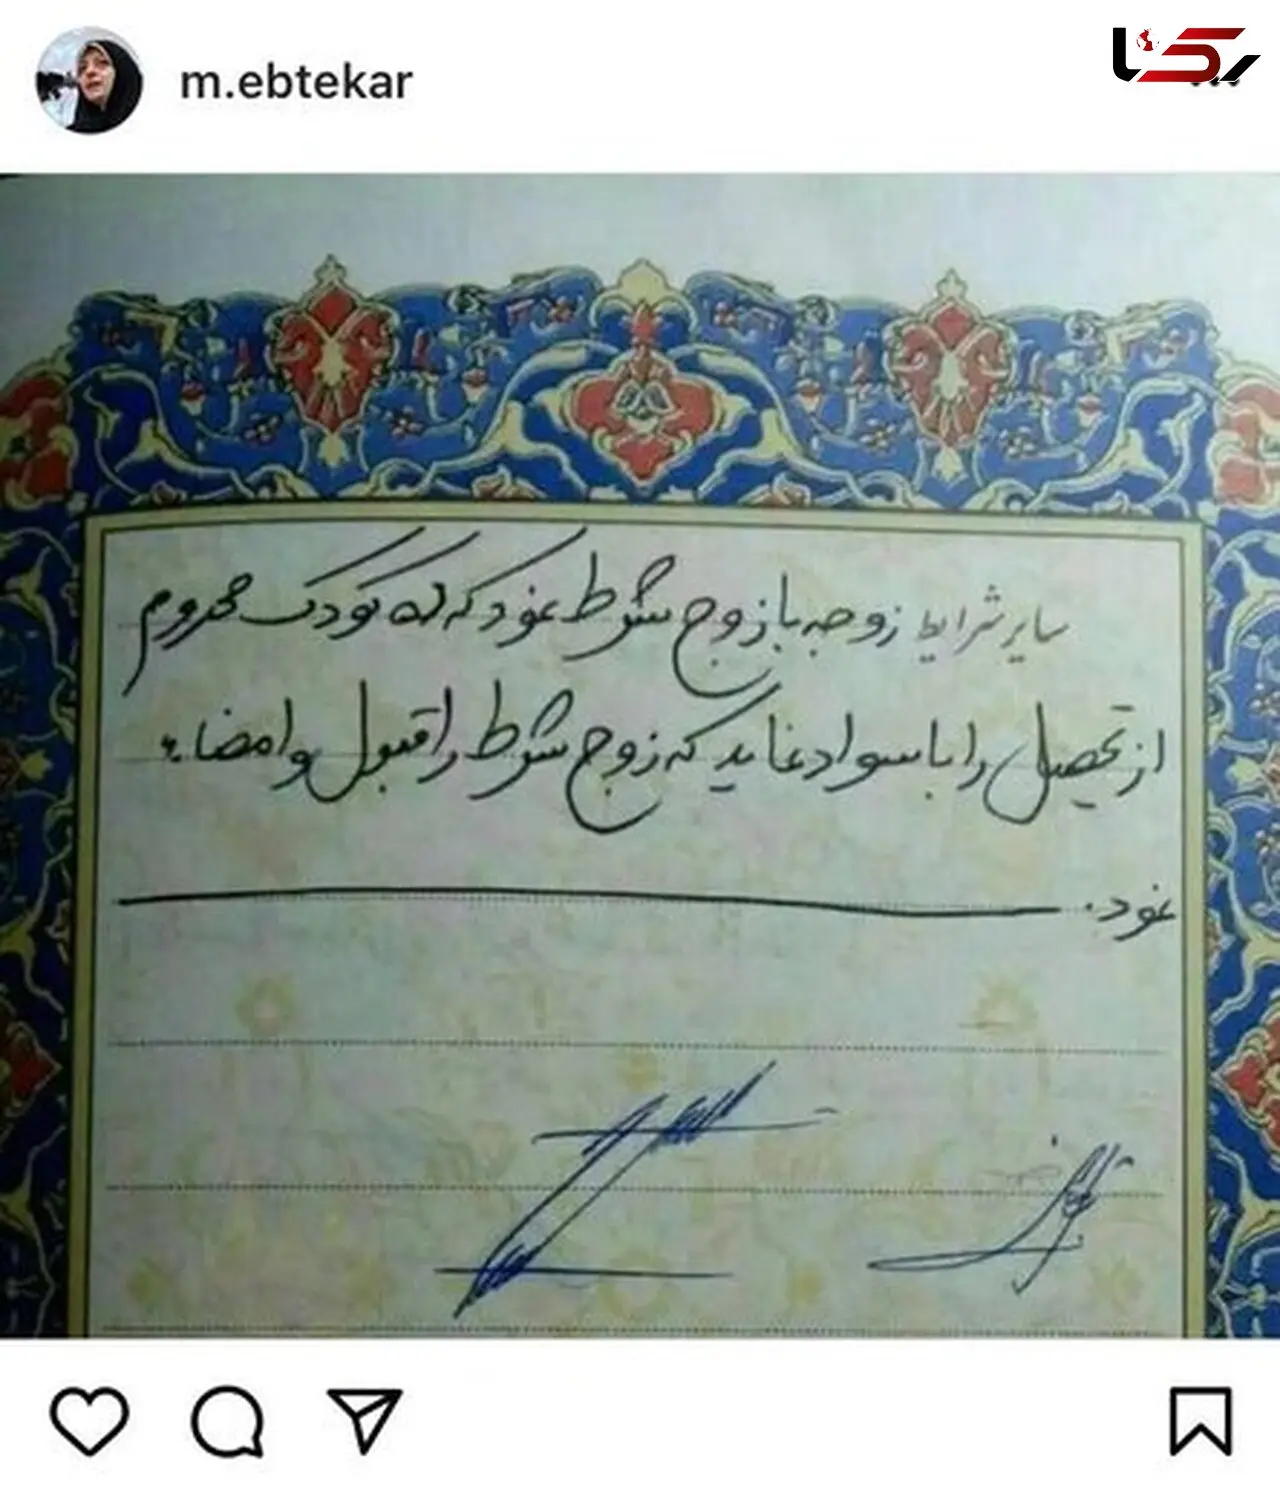 m.ebtekar
رکنا
سایر شرایط زوجه با زوج شرط نمود که له کودک محروم
از تحصیل را با سواد نماید که زوج شرط را قبول و امضاء
نمود.